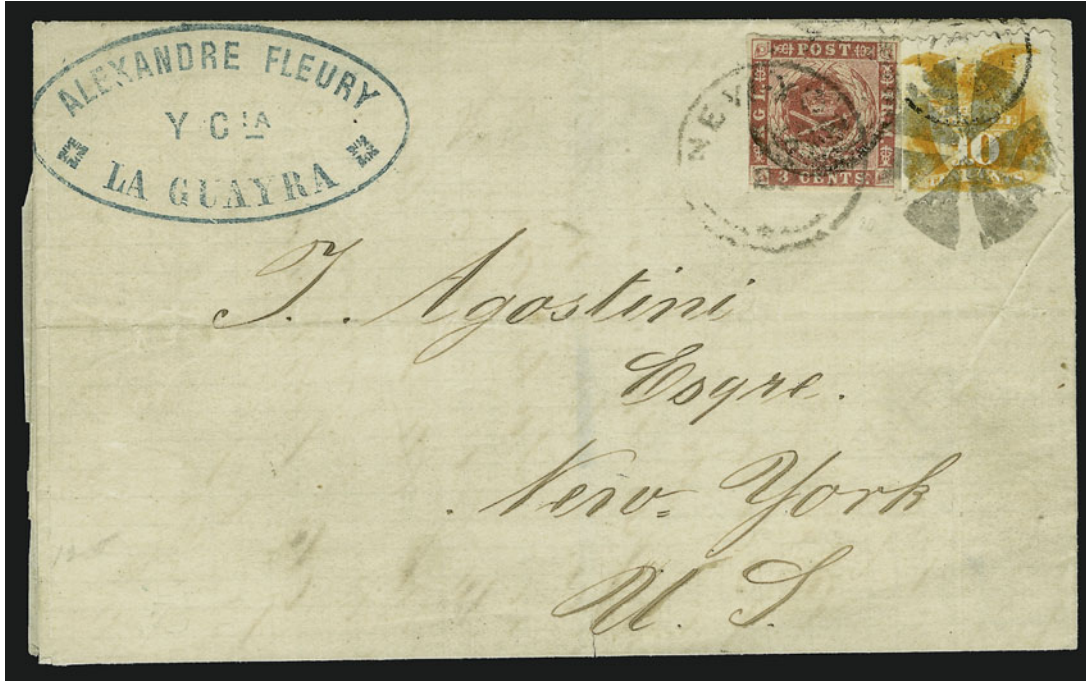 ALEXANDRE FLEURY
Y CIA
LA GUAYRA
POST
3 CENTS
10
J. Agostini
Esqre.
New York
U. S.